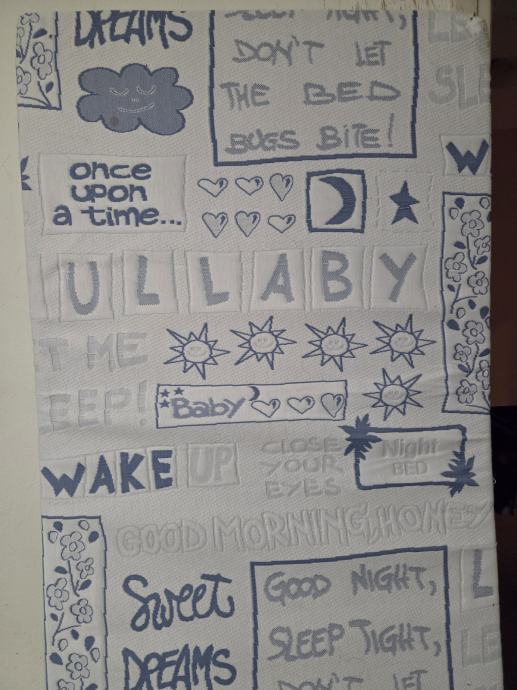 DREAMS
SLEEP TIGHT,
DON'T LET
THE BED
BUGS BITE!
LE
SLE
once
upon
a time...
W
ULLABY
T ME
EEP!
Baby
WAKE UP
CLOSE
YOUR
EYES
Night
BED
GOOD MORNING, HONEY
Sweet
DREAMS
GOOD NIGHT,
SLEEP TIGHT,
DON'T LET
L
LE